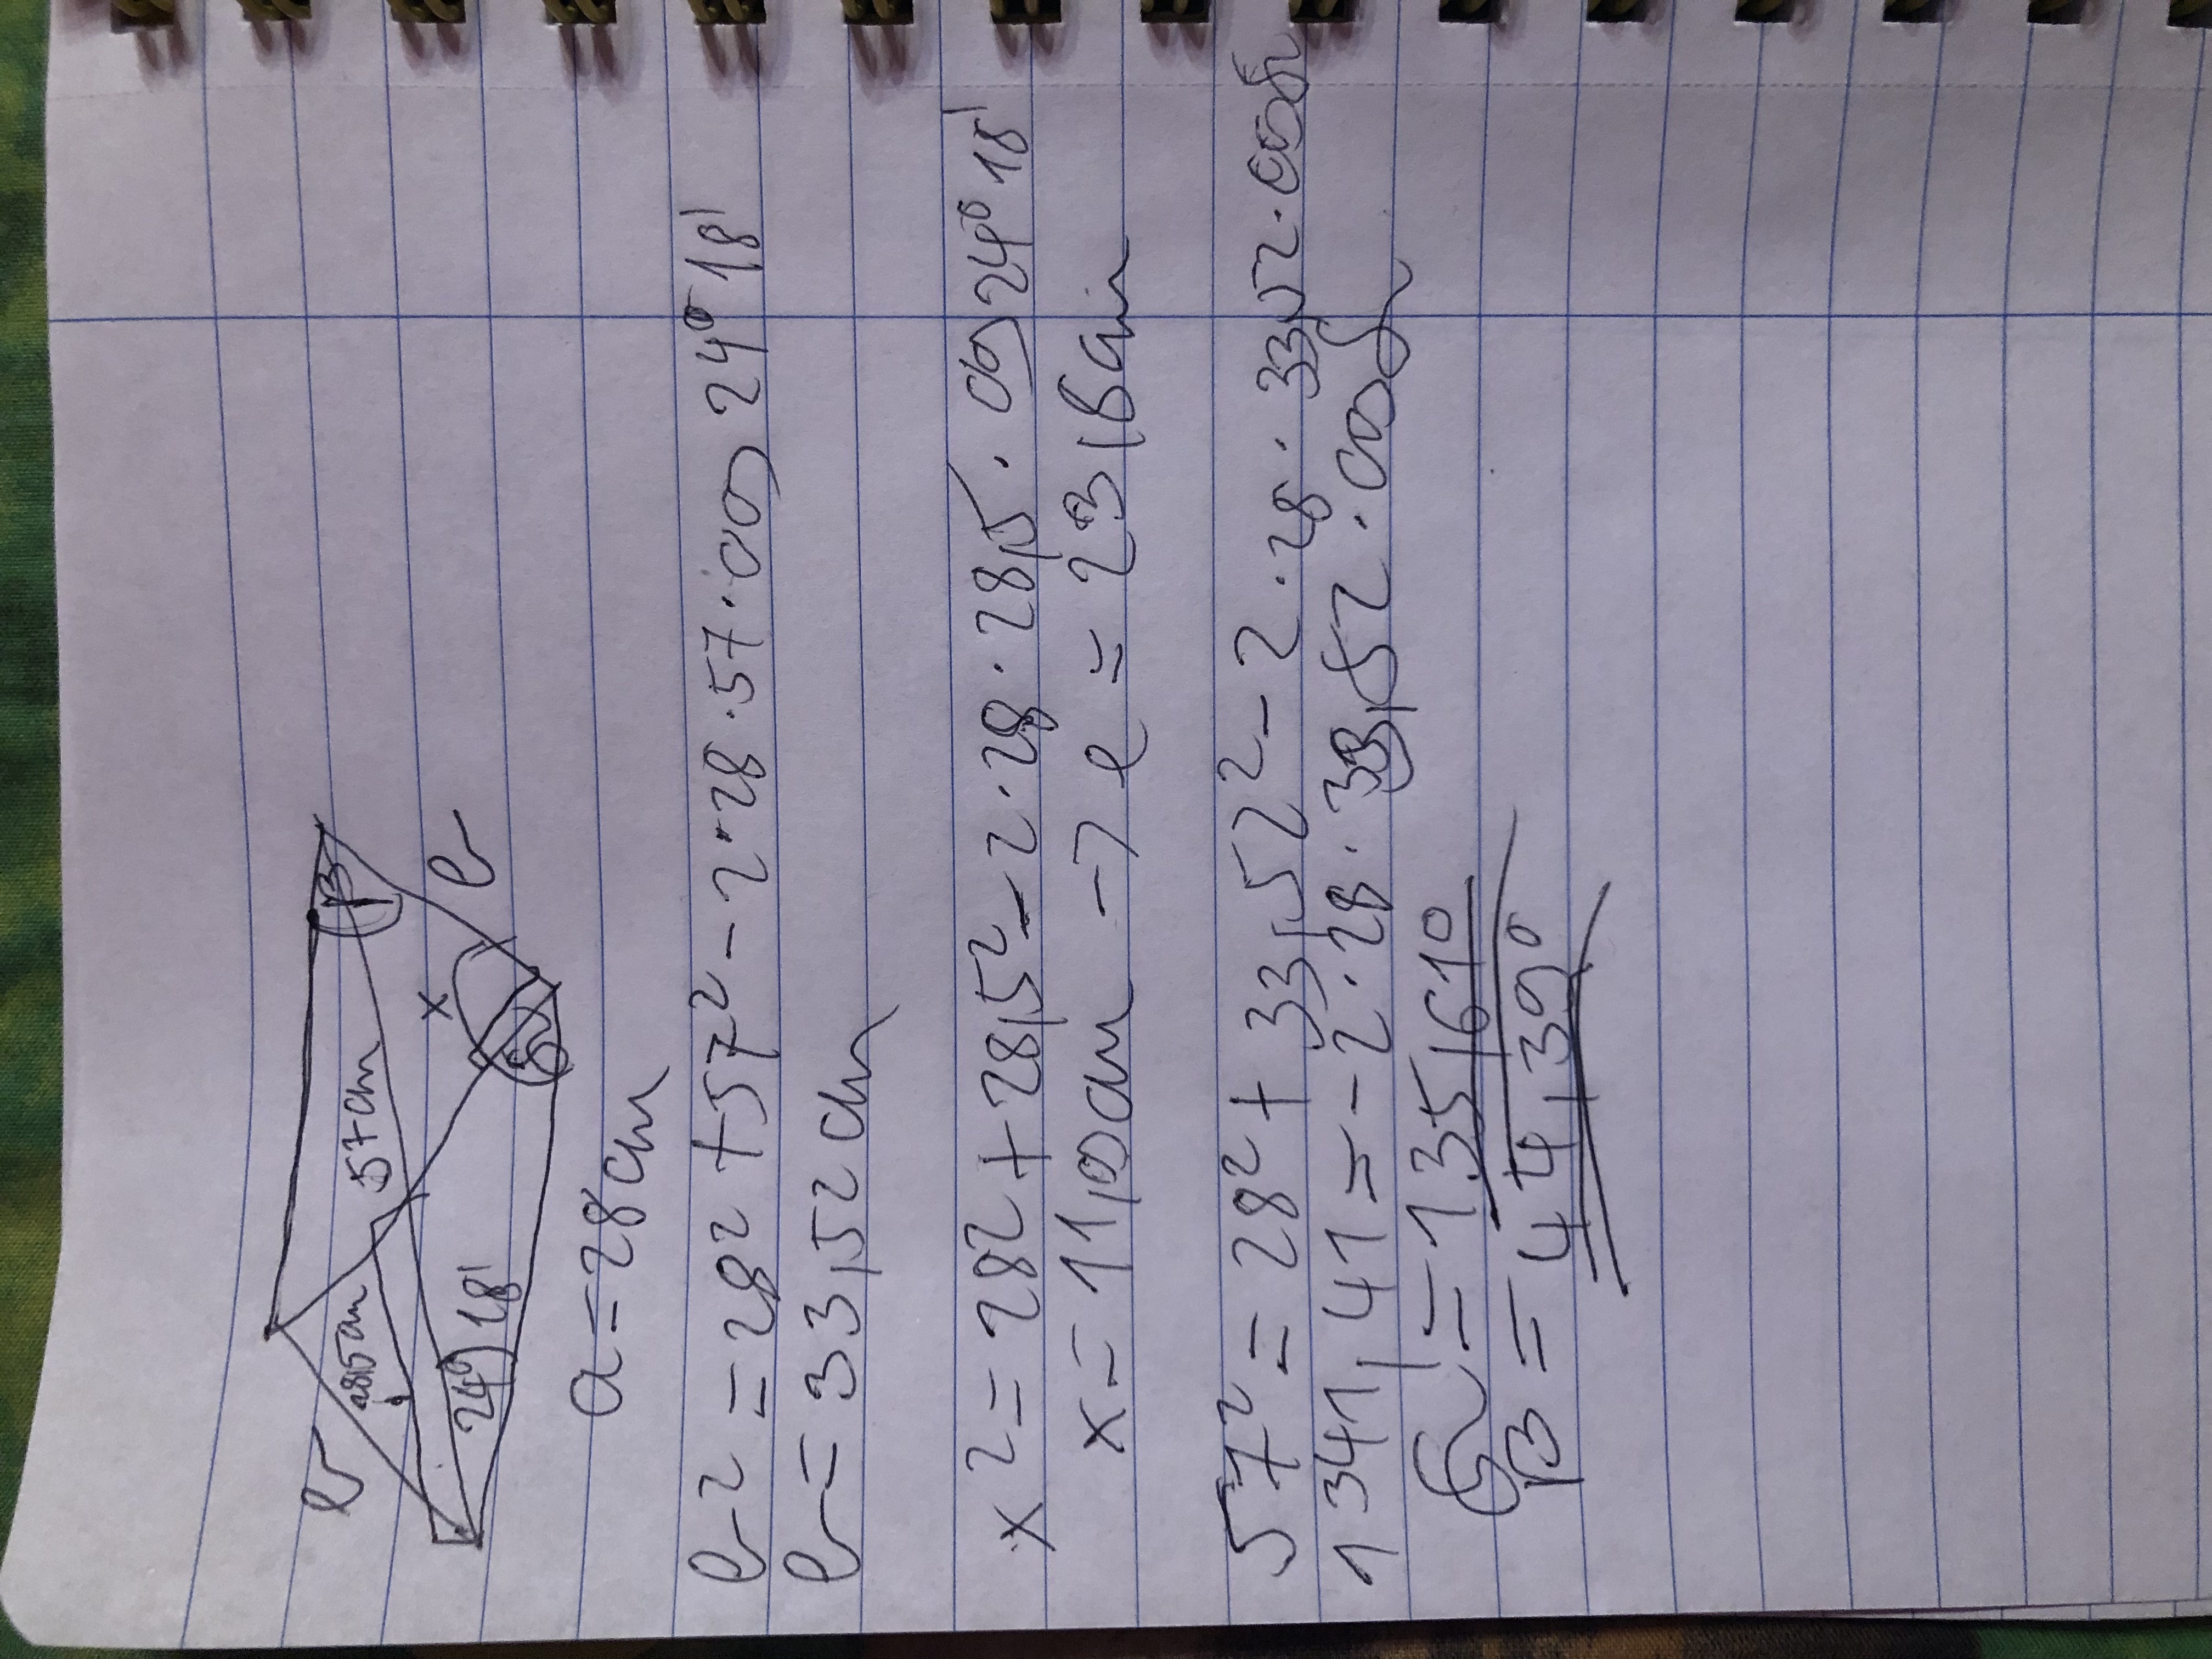 57cm
β
x
b
b
28,5cm
24° 18'
δ
a = 28cm
b² = 28² + 57² - 2·28·57·cos 24° 18'
b = 33,52cm
x² = 28² + 28,5² - 2·28·28,5·cos 24° 18'
x = 11,90cm → e = 23,8cm
57² = 28² + 33,52² - 2·28·33,52·cosδ
1341,41 = -2·28·33,52·cosδ
δ = 135,61°
β = 44,39°